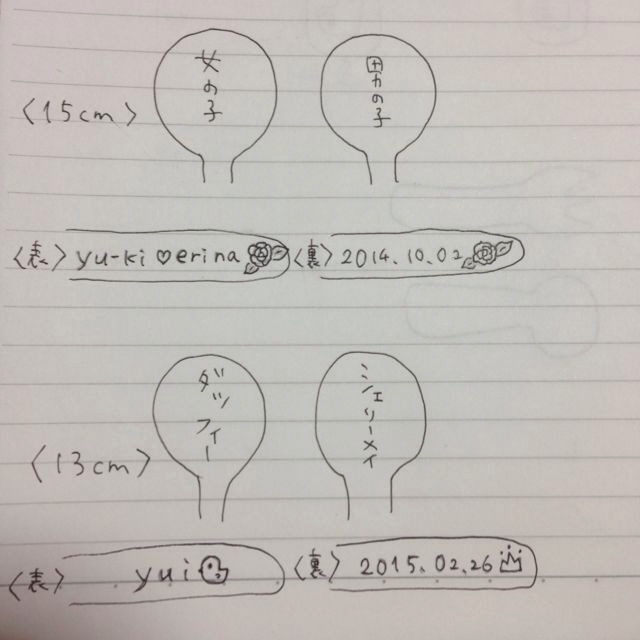 〈15cm〉 女の子 男の子
〈表〉 yu-ki♡erina 〈裏〉 2014.10.02
〈13cm〉 ダッフィー シェリーメイ
〈表〉 yui 〈裏〉 2015.02.26